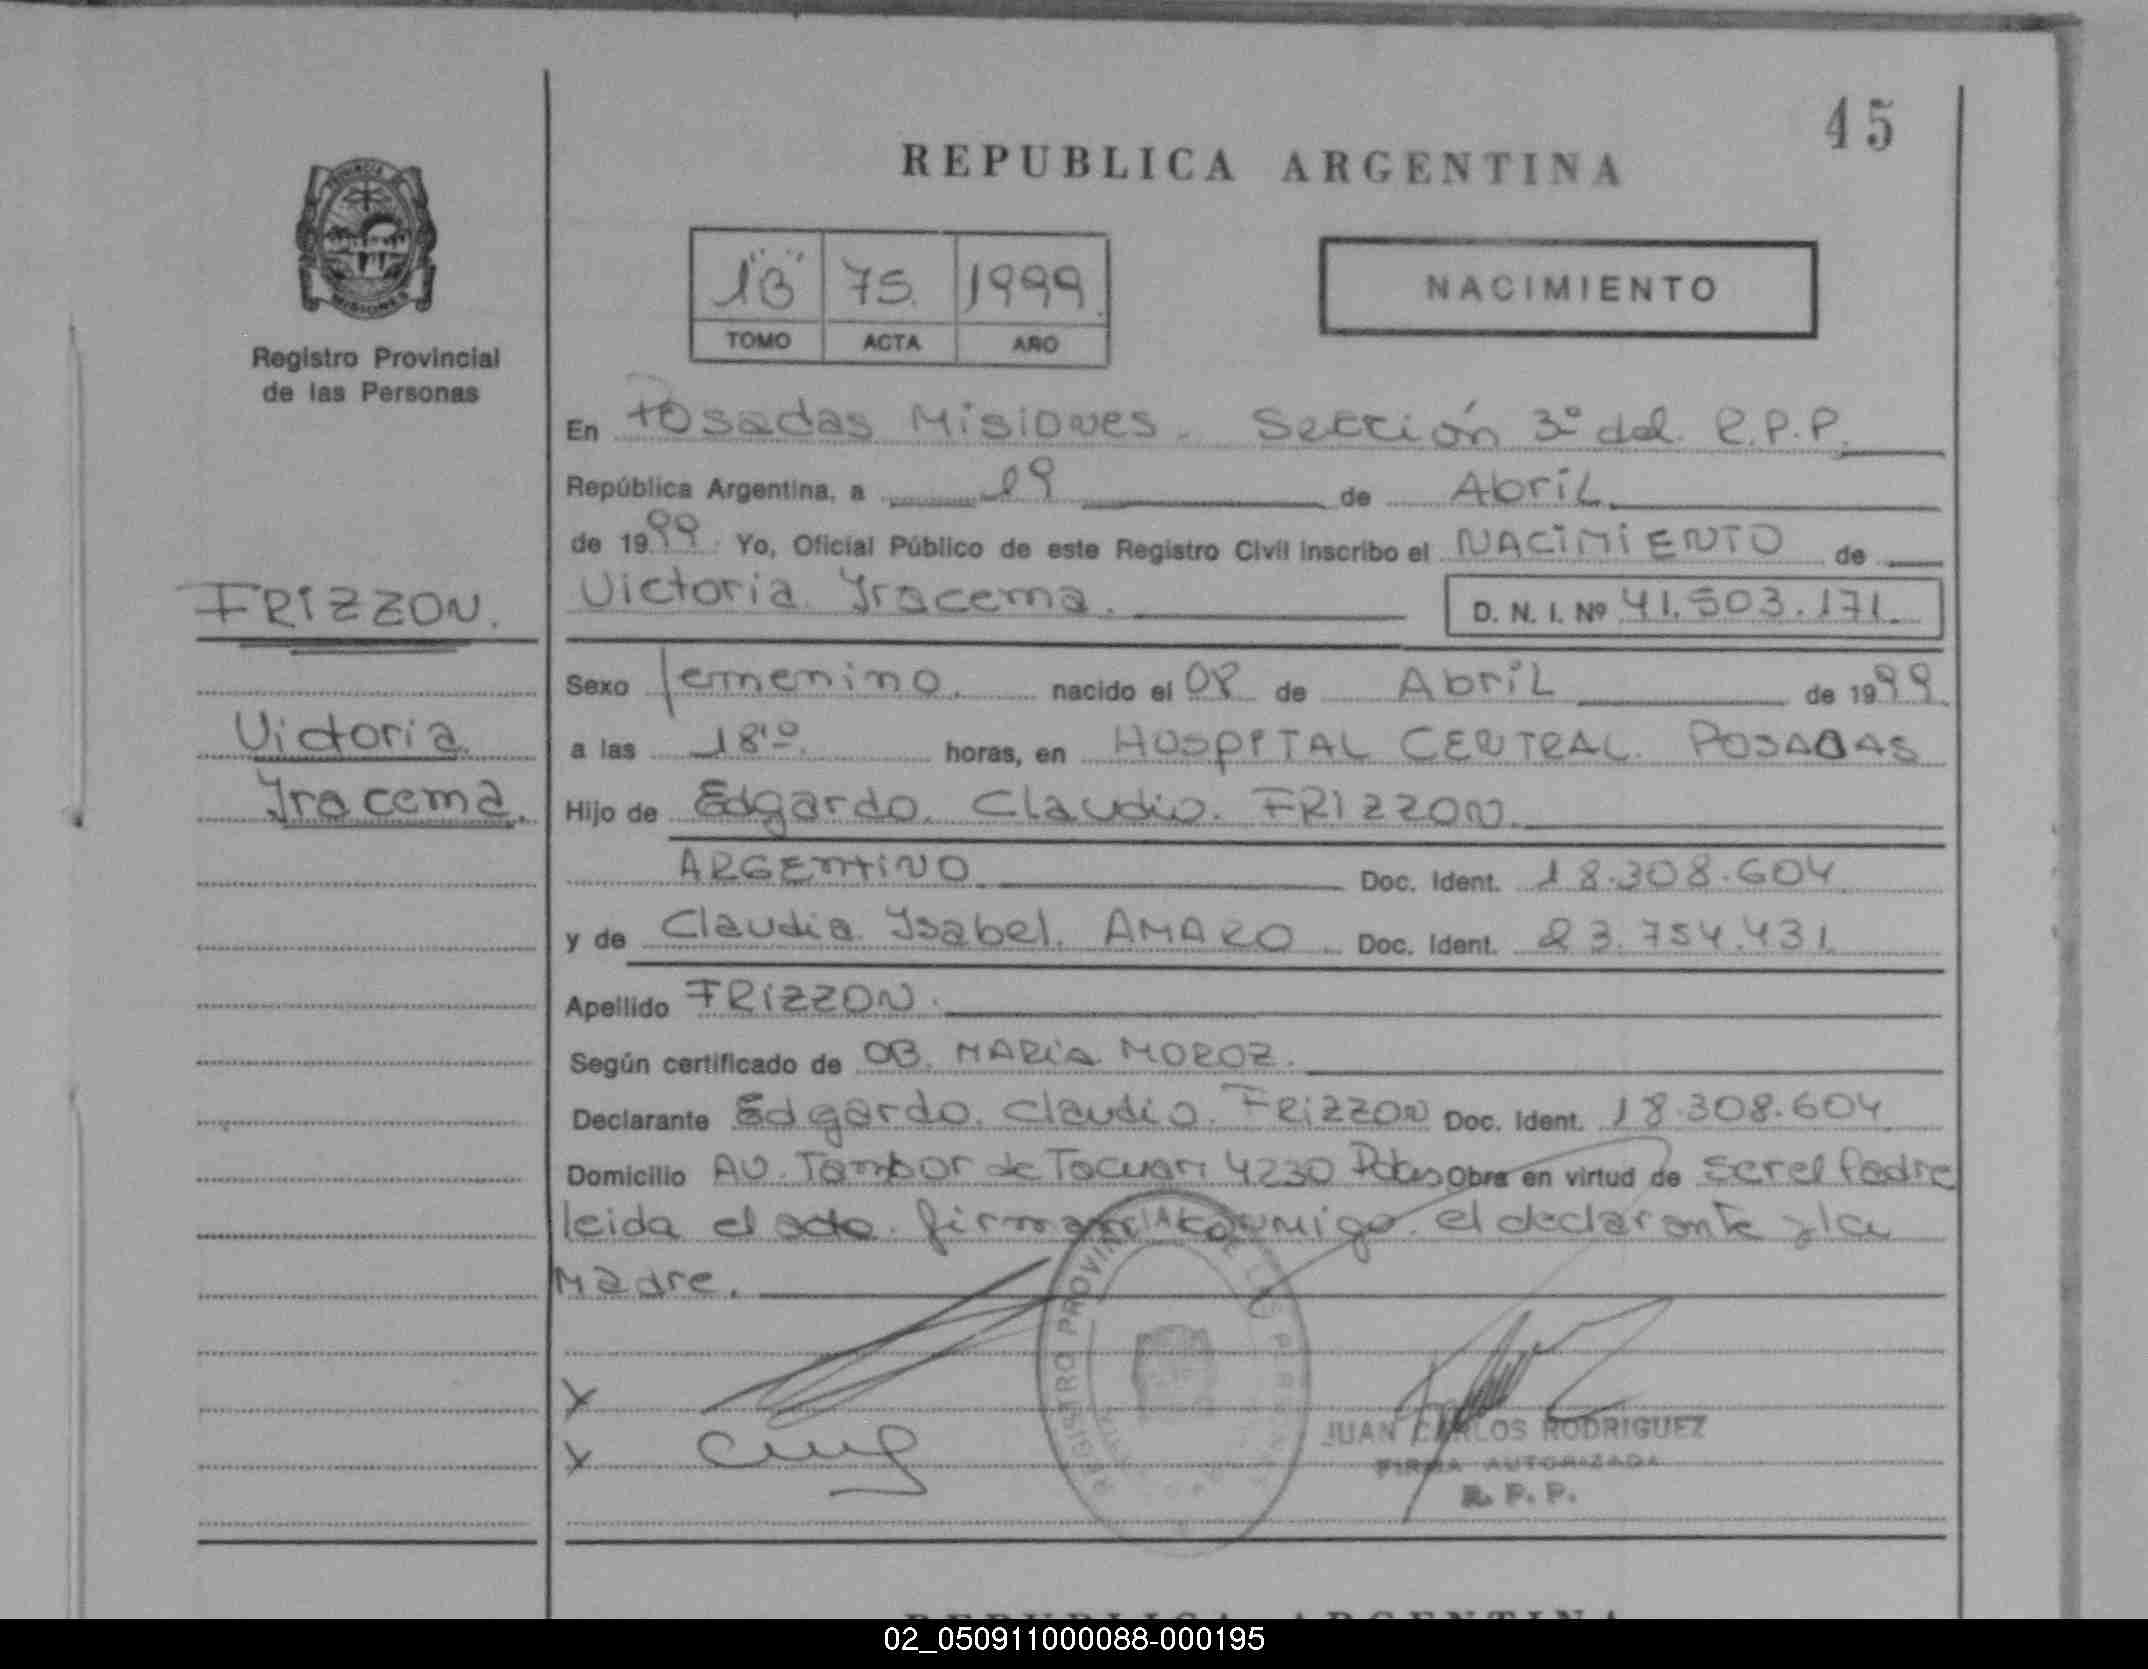 45
REPUBLICA ARGENTINA
1"B" 75. 1999.
TOMO ACTA AÑO
NACIMIENTO
Registro Provincial
de las Personas
En Posadas Misiones. Sección 3º del R.P.P.
República Argentina, a 19 de Abril
de 1999. Yo, Oficial Público de este Registro Civil inscribo el NACIMIENTO de
FRIZZON.
Victoria Iracema. D. N. I. Nº 41.503.171.
Sexo femenino. nacido el 08 de Abril de 1999.
Victoria
a las 18'º. horas, en HOSPITAL CENTRAL. POSADAS
Iracema.
Hijo de Edgardo. Claudio. FRIZZON.
ARGENTINO Doc. Ident. 18.308.604
y de Claudia Isabel. AMARO. Doc. Ident. 23.754.431.
Apellido FRIZZON.
Según certificado de OB. MARIA MOROZ.
Declarante Edgardo. Claudio. FRIZZON Doc. Ident. 18.308.604
Domicilio AV. Tambor de Tacuari 4230 Pdas Obra en virtud de ser el Padre
leida el acta. firman conmigo. el declarante y la
Madre.
REGISTRO PROVINCIAL DE LAS PERSONAS
X
X
JUAN CARLOS RODRIGUEZ
FIRMA AUTORIZADA
R. P. P.
REPUBLICA ARGENTINA
02_050911000088-000195